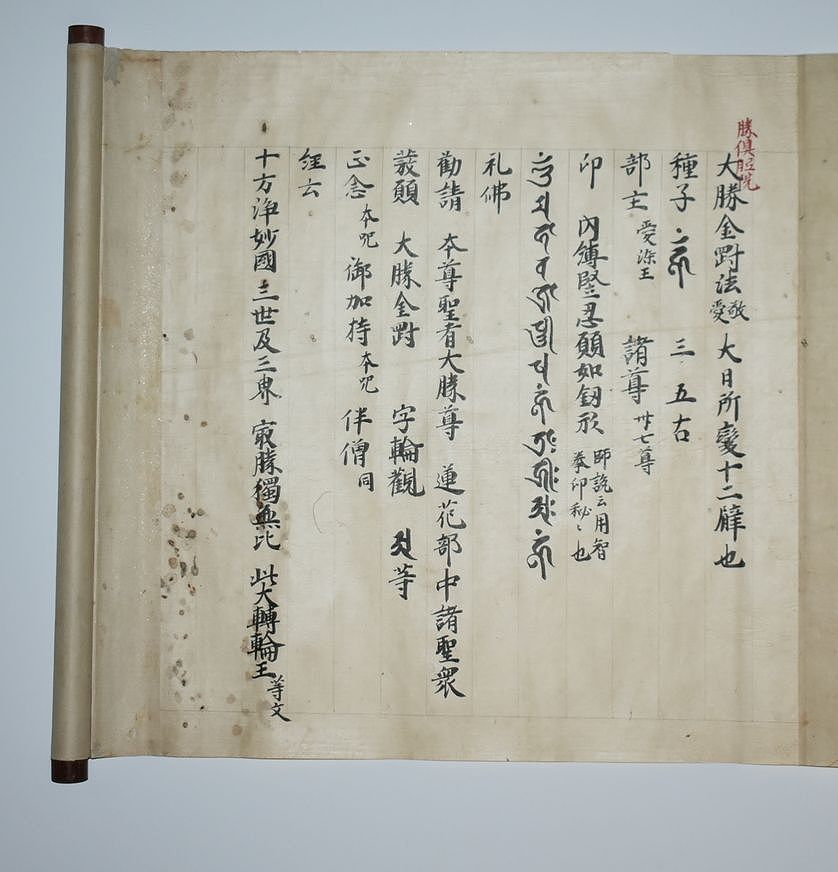 大勝金剛法 敬愛 大日所變十二臂也
種子 三 五古
部主 愛染王 諸尊 卅七尊
印 內縛竪忍願如釼形 師說云用智拳印秘〻也
礼佛
勸請 本尊聖者大勝尊 蓮花部中諸聖衆
發願 大勝金剛 字輪觀 等
正念 本呪 御加持 本呪 伴僧 同
經云
十方淨妙國 三世及三界 㝡勝獨無比 此大轉輪王 等文